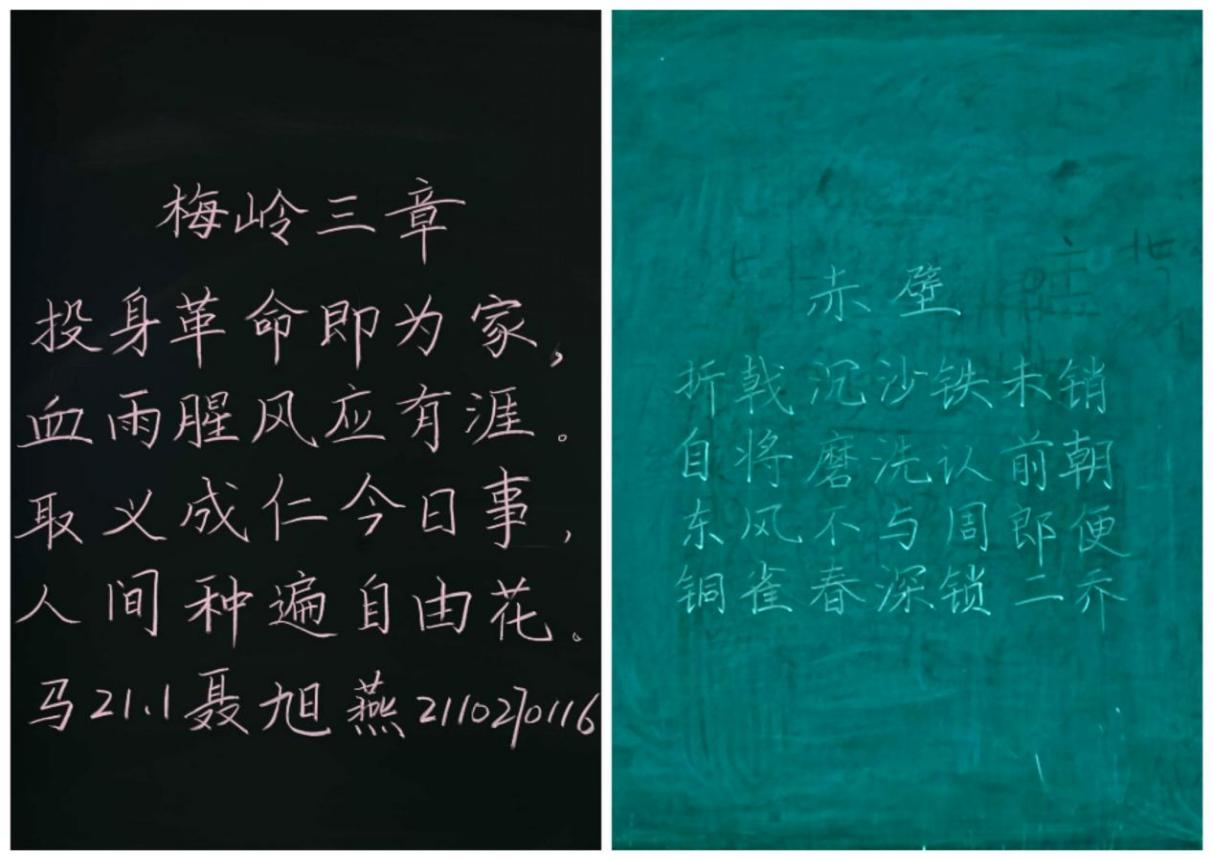 梅岭三章
投身革命即为家，
血雨腥风应有涯。
取义成仁今日事，
人间种遍自由花。
马21.1聂旭燕2110270116
赤壁
折戟沉沙铁未销
自将磨洗认前朝
东风不与周郎便
铜雀春深锁二乔